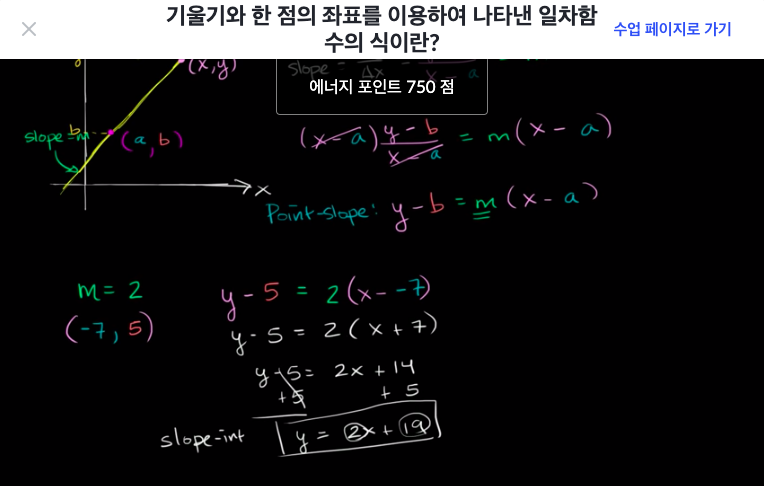 기울기와 한 점의 좌표를 이용하여 나타낸 일차함
수의 식이란?
수업 페이지로 가기
에너지 포인트 750 점
slope =
Δx
x - a
(x,y)
b
slope = m
(a, b)
x
(x-a) y - b / x - a = m(x - a)
Point-slope: y - b = m(x - a)
m = 2
(-7, 5)
y - 5 = 2(x - -7)
y - 5 = 2(x + 7)
y - 5 = 2x + 14
+5 + 5
slope-int y = 2x + 19